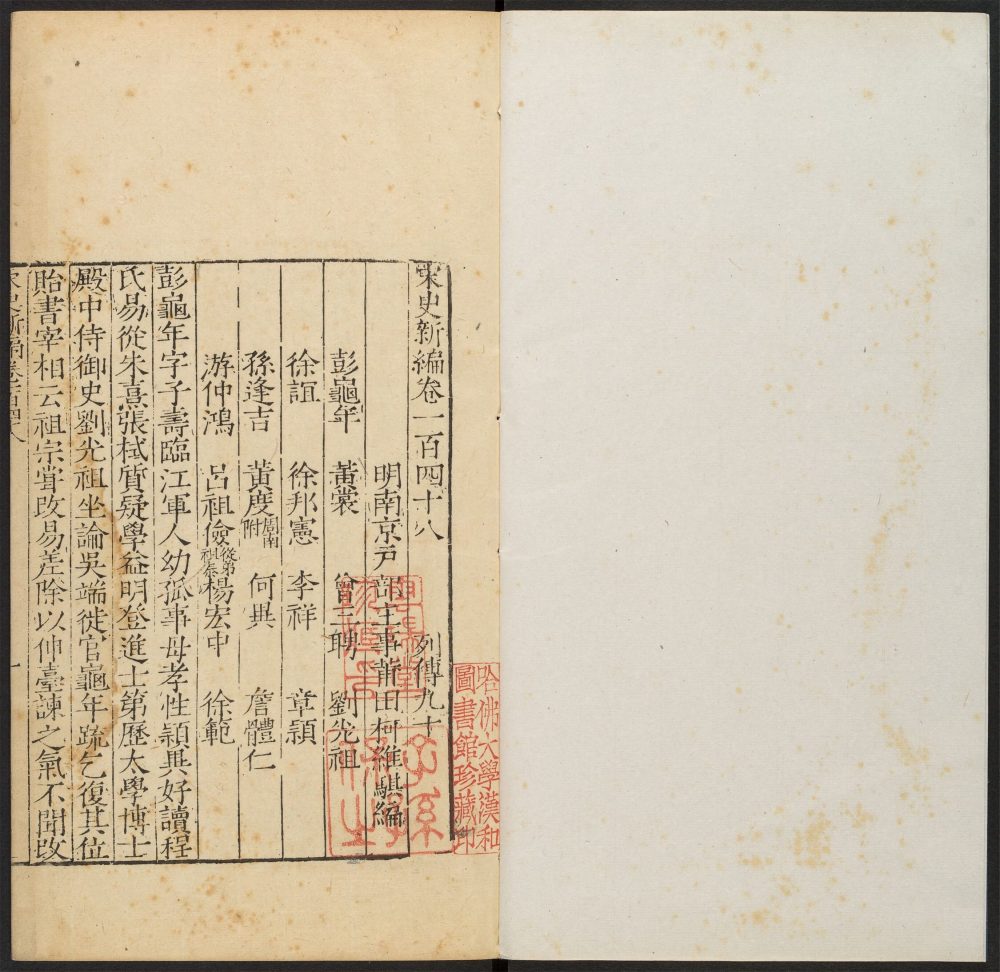 宋史新編卷一百四十八 列傳九十
明南京戸部主事莆田柯維騏編
彭龜年 黃裳 曾三聘 劉光祖
徐誼 徐邦憲 李祥 章頴
孫逢吉 黃度周南附 何異 詹體仁
游仲鴻 呂祖儉從弟祖泰 楊宏中 徐範
彭龜年字子壽臨江軍人幼孤事母孝性頴異好讀程
氏易從朱熹張栻質疑學益明登進士第歷太學博士
殿中侍御史劉光祖坐論吳端徙官龜年疏乞復其位
貽書宰相云祖宗嘗改易差除以伸臺諫之氣不聞改
宋史新編卷一百四十八 一
哈佛大學漢和
圖書館珍藏印
子孫